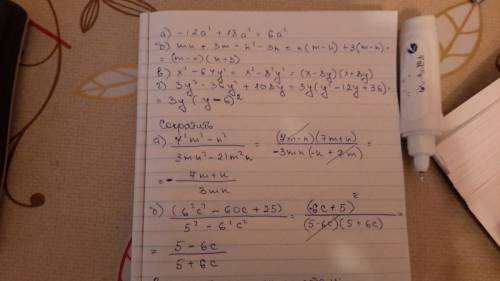 а) -12a³ + 18a³ = 6a³
б) mn + 3m - n² - 3n = n(m-n) + 3(m-n) =
= (m-n)(n+3)
в) x² - 64y² = x² - 8²y² = (x-8y)(x+8y)
г) 3y³ - 36y² + 108y = 3y(y² - 12y + 36) =
= 3y(y-6)²
Сократить
а) (7²m² - n²)/(3mn² - 21m²n) = (7m-n)(7m+n)/(-3mn(-n+7m)) =
= - (7m+n)/(3mn)
б) (6²c² - 60c + 25)/(5² - 6²c²) = (-6c+5)²/((5-6c)(5+6c)) =
= (5-6c)/(5+6c)